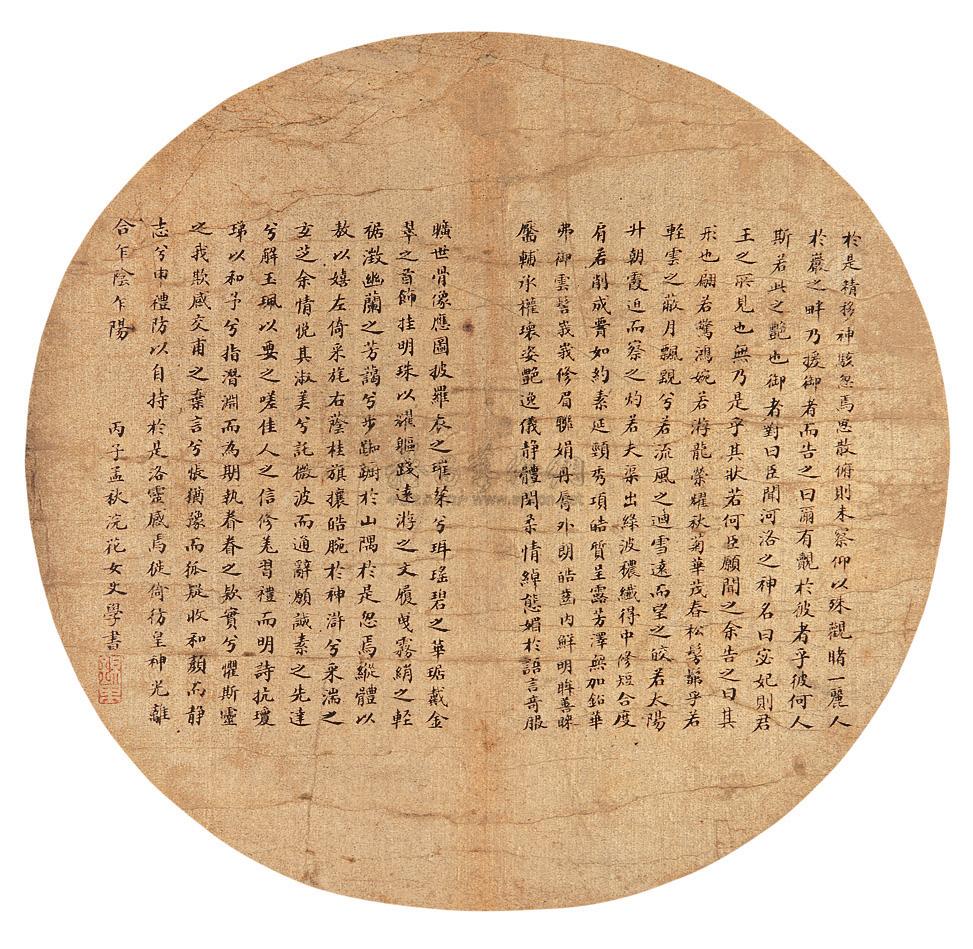 於是精移神駭忽焉思散俯則未察仰以殊觀睹一麗人
於巖之畔乃援御者而告之曰爾有覿於彼者乎彼何人
斯若此之艷也御者對曰臣聞河洛之神名曰宓妃則君
王之所見也無乃是乎其狀若何臣願聞之余告之曰其
形也翩若驚鴻婉若游龍榮耀秋菊華茂春松髣髴乎若
輕雲之蔽月飄飖兮若流風之迴雪遠而望之皎若太陽
升朝霞迫而察之灼若夫渠出綠波穠纖得中修短合度
肩若削成要如約素延頸秀項皓質呈露芳澤無加鉛華
弗御雲髻峩峩修眉聯娟丹脣外朗皓齒內鮮明眸善睞
靨輔承權瓌姿艷逸儀靜體閑柔情綽態媚於語言奇服
曠世骨像應圖披羅衣之璀粲兮珥瑤碧之華琚戴金
翠之首飾挂明珠以耀軀踐遠游之文履曳霧綃之輕
裾微幽蘭之芳藹兮步踟躕於山隅於是忽焉縱體以
敖以嬉左倚采旄右蔭桂旗攘皓腕於神滸兮采湍之
玄芝余情悅其淑美兮託微波而通辭願誠素之先達
兮解玉珮以要之嗟佳人之信修羌習禮而明詩抗瓊
珶以和予兮指潛淵而為期執眷眷之款實兮懼斯靈
之我欺感交甫之棄言兮悵猶豫而狐疑收和顏而靜
志兮申禮防以自持於是洛靈感焉徙倚彷皇神光離
合乍陰乍陽 丙子孟秋浣花女史學書